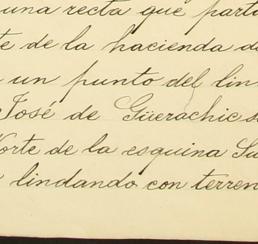 una recta que parti
te de la hacienda de
un punto del lin
José de Güerachic s
Norte de la esquina Su
lindando con terren